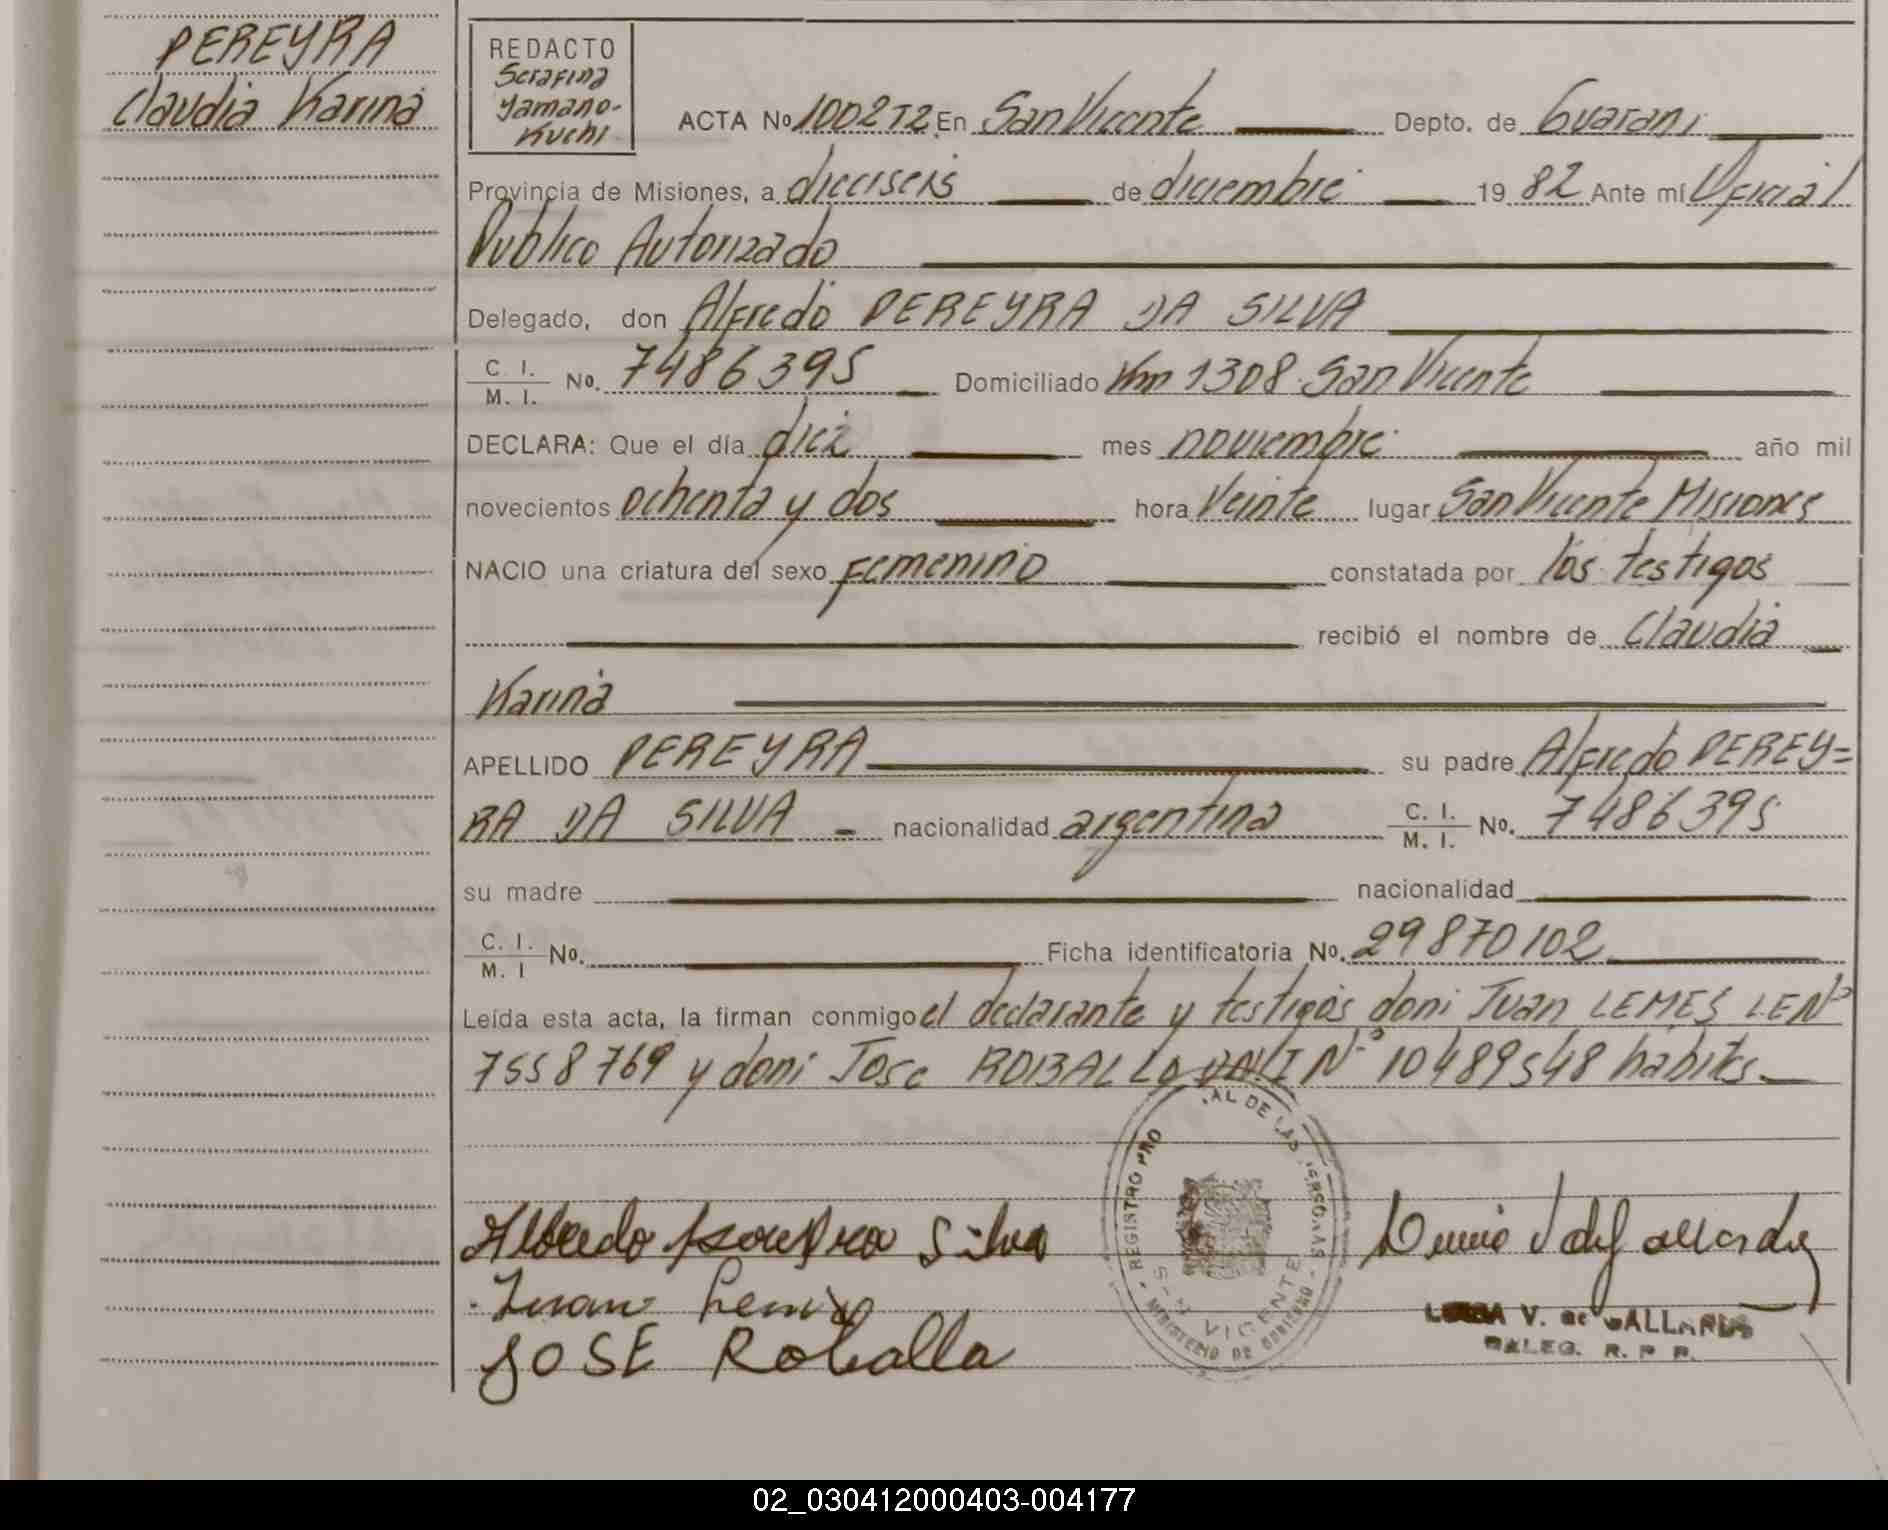 PEREYRA
Claudia Karina
REDACTO
Serafina
Yamano-
Kuchi
ACTA No 1002T2 En San Vicente Depto. de Guarani
Provincia de Misiones, a dieciseis de diciembre 1982 Ante mí Oficial
Publico Autorizado
Delegado, don Alfredo PEREYRA DA SILVA
C. I. / M. I. No. 7486395 Domiciliado Km 1308 San Vicente
DECLARA: Que el día diez mes noviembre año mil
novecientos ochenta y dos hora Veinte lugar San Vicente Misiones
NACIO una criatura del sexo femenino constatada por los testigos
recibió el nombre de Claudia
Karina
APELLIDO PEREYRA su padre Alfredo PEREY=
RA DA SILVA - nacionalidad argentina C. I. / M. I. No. 7486395
su madre nacionalidad
C. I. / M. I No. Ficha identificatoria No. 29870102
Leída esta acta, la firman conmigo el declarante y testigos don: Juan LEMES L.E Nº
7558769 y don: Jose ROBALLO DNI Nº 10489548 habites.
REGISTRO PRO AL DE LAS PERSONAS
VICENTE
MINISTERIO DE GOBIERNO
Silva
Juan
JOSE Roballo
V. de GALLARDO
DELEG. R. P. P.
02_030412000403-004177